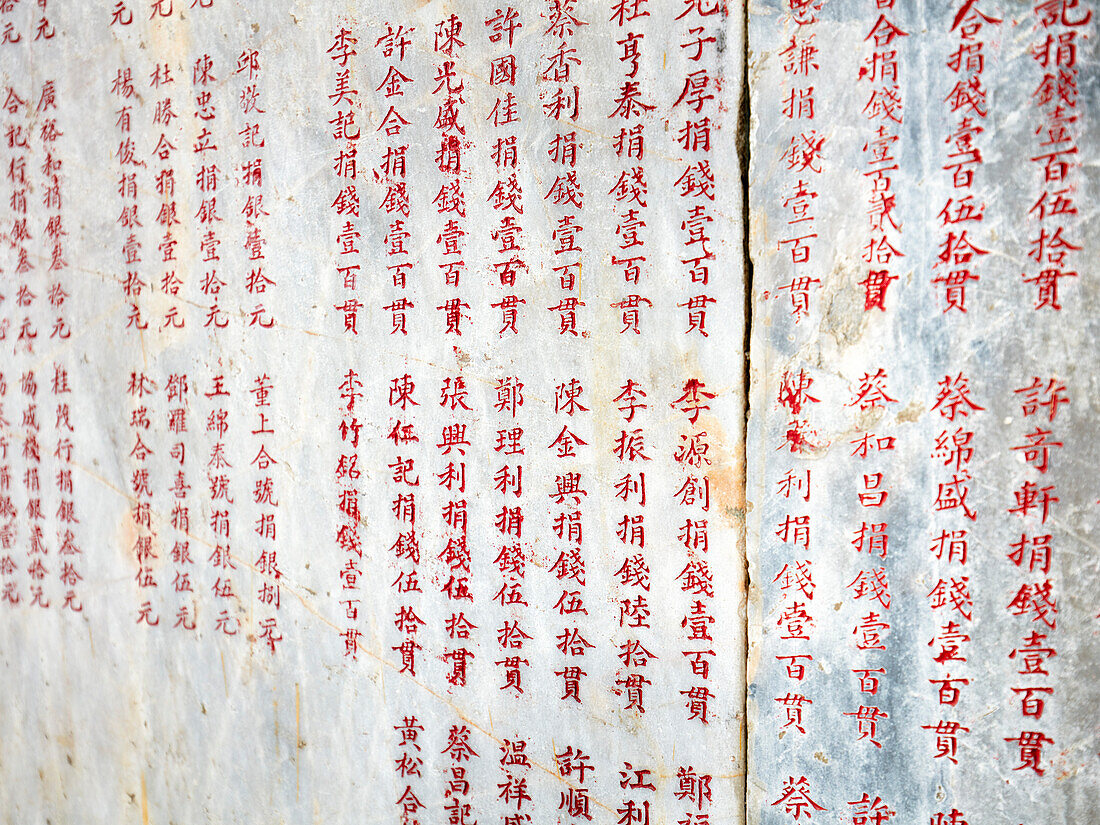 記捐錢壹百伍拾貫
許奇軒捐錢壹百貫
合捐錢壹百伍拾貫
蔡綿盛捐錢壹百貫
陳
合捐錢壹百貳拾貫
蔡和昌捐錢壹百貫
許
謙捐錢壹百貫
陳 利捐錢壹百貫
蔡
子厚捐錢壹百貫
李源創捐錢壹百貫
鄭福
杜亨泰捐錢壹百貫
李振利捐錢陸拾貫
江利
蔡香利捐錢壹百貫
陳金興捐錢伍拾貫
許順
許國佳捐錢壹百貫
鄭理利捐錢伍拾貫
溫祥盛
陳光盛捐錢壹百貫
張興利捐錢伍拾貫
蔡昌記
許金合捐錢壹百貫
陳伍記捐錢伍拾貫
黃松合
李美記捐錢壹百貫
李竹銘捐錢壹百貫
邱敬記捐銀壹拾元
董上合號捐銀捌元
陳忠立捐銀壹拾元
王綿泰號捐銀伍元
元
杜勝合捐銀壹拾元
鄧羅司喜捐銀伍元
元
楊有俊捐銀壹拾元
林瑞合號捐銀伍元
元
廣裕和捐銀叁拾元
桂茂行捐銀叁拾元
拾元
合記行捐銀叁拾元
協成棧捐銀貳拾元
行捐銀壹拾元